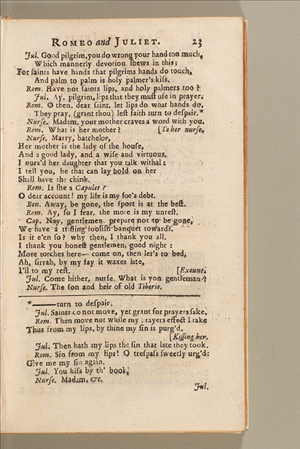 ROMEO and JULIET. 23
Jul. Good pilgrim, you do wrong your hand too much,
Which mannerly devotion shews in this;
For saints have hands that pilgrims hands do touch,
And palm to palm is holy palmer's kiss.
Rom. Have not saints lips, and holy palmers too?
Jul. Ay, pilgrim, lips that they must use in prayer.
Rom. O then, dear saint, let lips do what hands do,
They pray, (grant thou) left faith turn to despair.*
Nurse. Madam, your mother craves a word with you.
Rom. What is her mother? [To her nurse,
Nurse. Marry, batchelor,
Her mother is the lady of the house,
And a good lady, and a wise and virtuous.
I nurs'd her daughter that you talk withal:
I tell you, he that can lay hold on her
Shall have the chink.
Rom. Is she a Capulet?
O dear account! my life is my foe's debt.
Ben. Away, be gone, the sport is at the best.
Rom. Ay, so I fear, the more is my unrest.
Cap. Nay, gentlemen, prepare not to be gone,
We have a trifling foolish banquet towards.
Is it e'en so? why then, I thank you all.
I thank you honest gentlemen, good night:
More torches here— come on, then let's to bed,
Ah, sirrah, by my fay it waxes late,
I'll to my rest. [Exeunt.
Jul. Come hither, nurse. What is yon gentleman?
Nurse. The son and heir of old Tiberio.
*——turn to despair.
Jul. Saints do not move, yet grant for prayers sake.
Rom. Then move not while my prayers effect I take
Thus from my lips, by thine my sin is purg'd.
[Kissing her.
Jul. Then hath my lips the sin that late they took.
Rom. Sin from my lips! O trespass sweetly urg'd:
Give me my sin again.
Jul. You kiss by th' book.
Nurse. Madam, &c.
Jul.